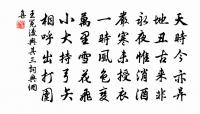 天時今亦
地丑古來非
永夜惟消酒
寒未授衣
一時風色變
萬里雪花飛
小犬持弓矢
相呼出打圍
王冕漫興其三詞典網